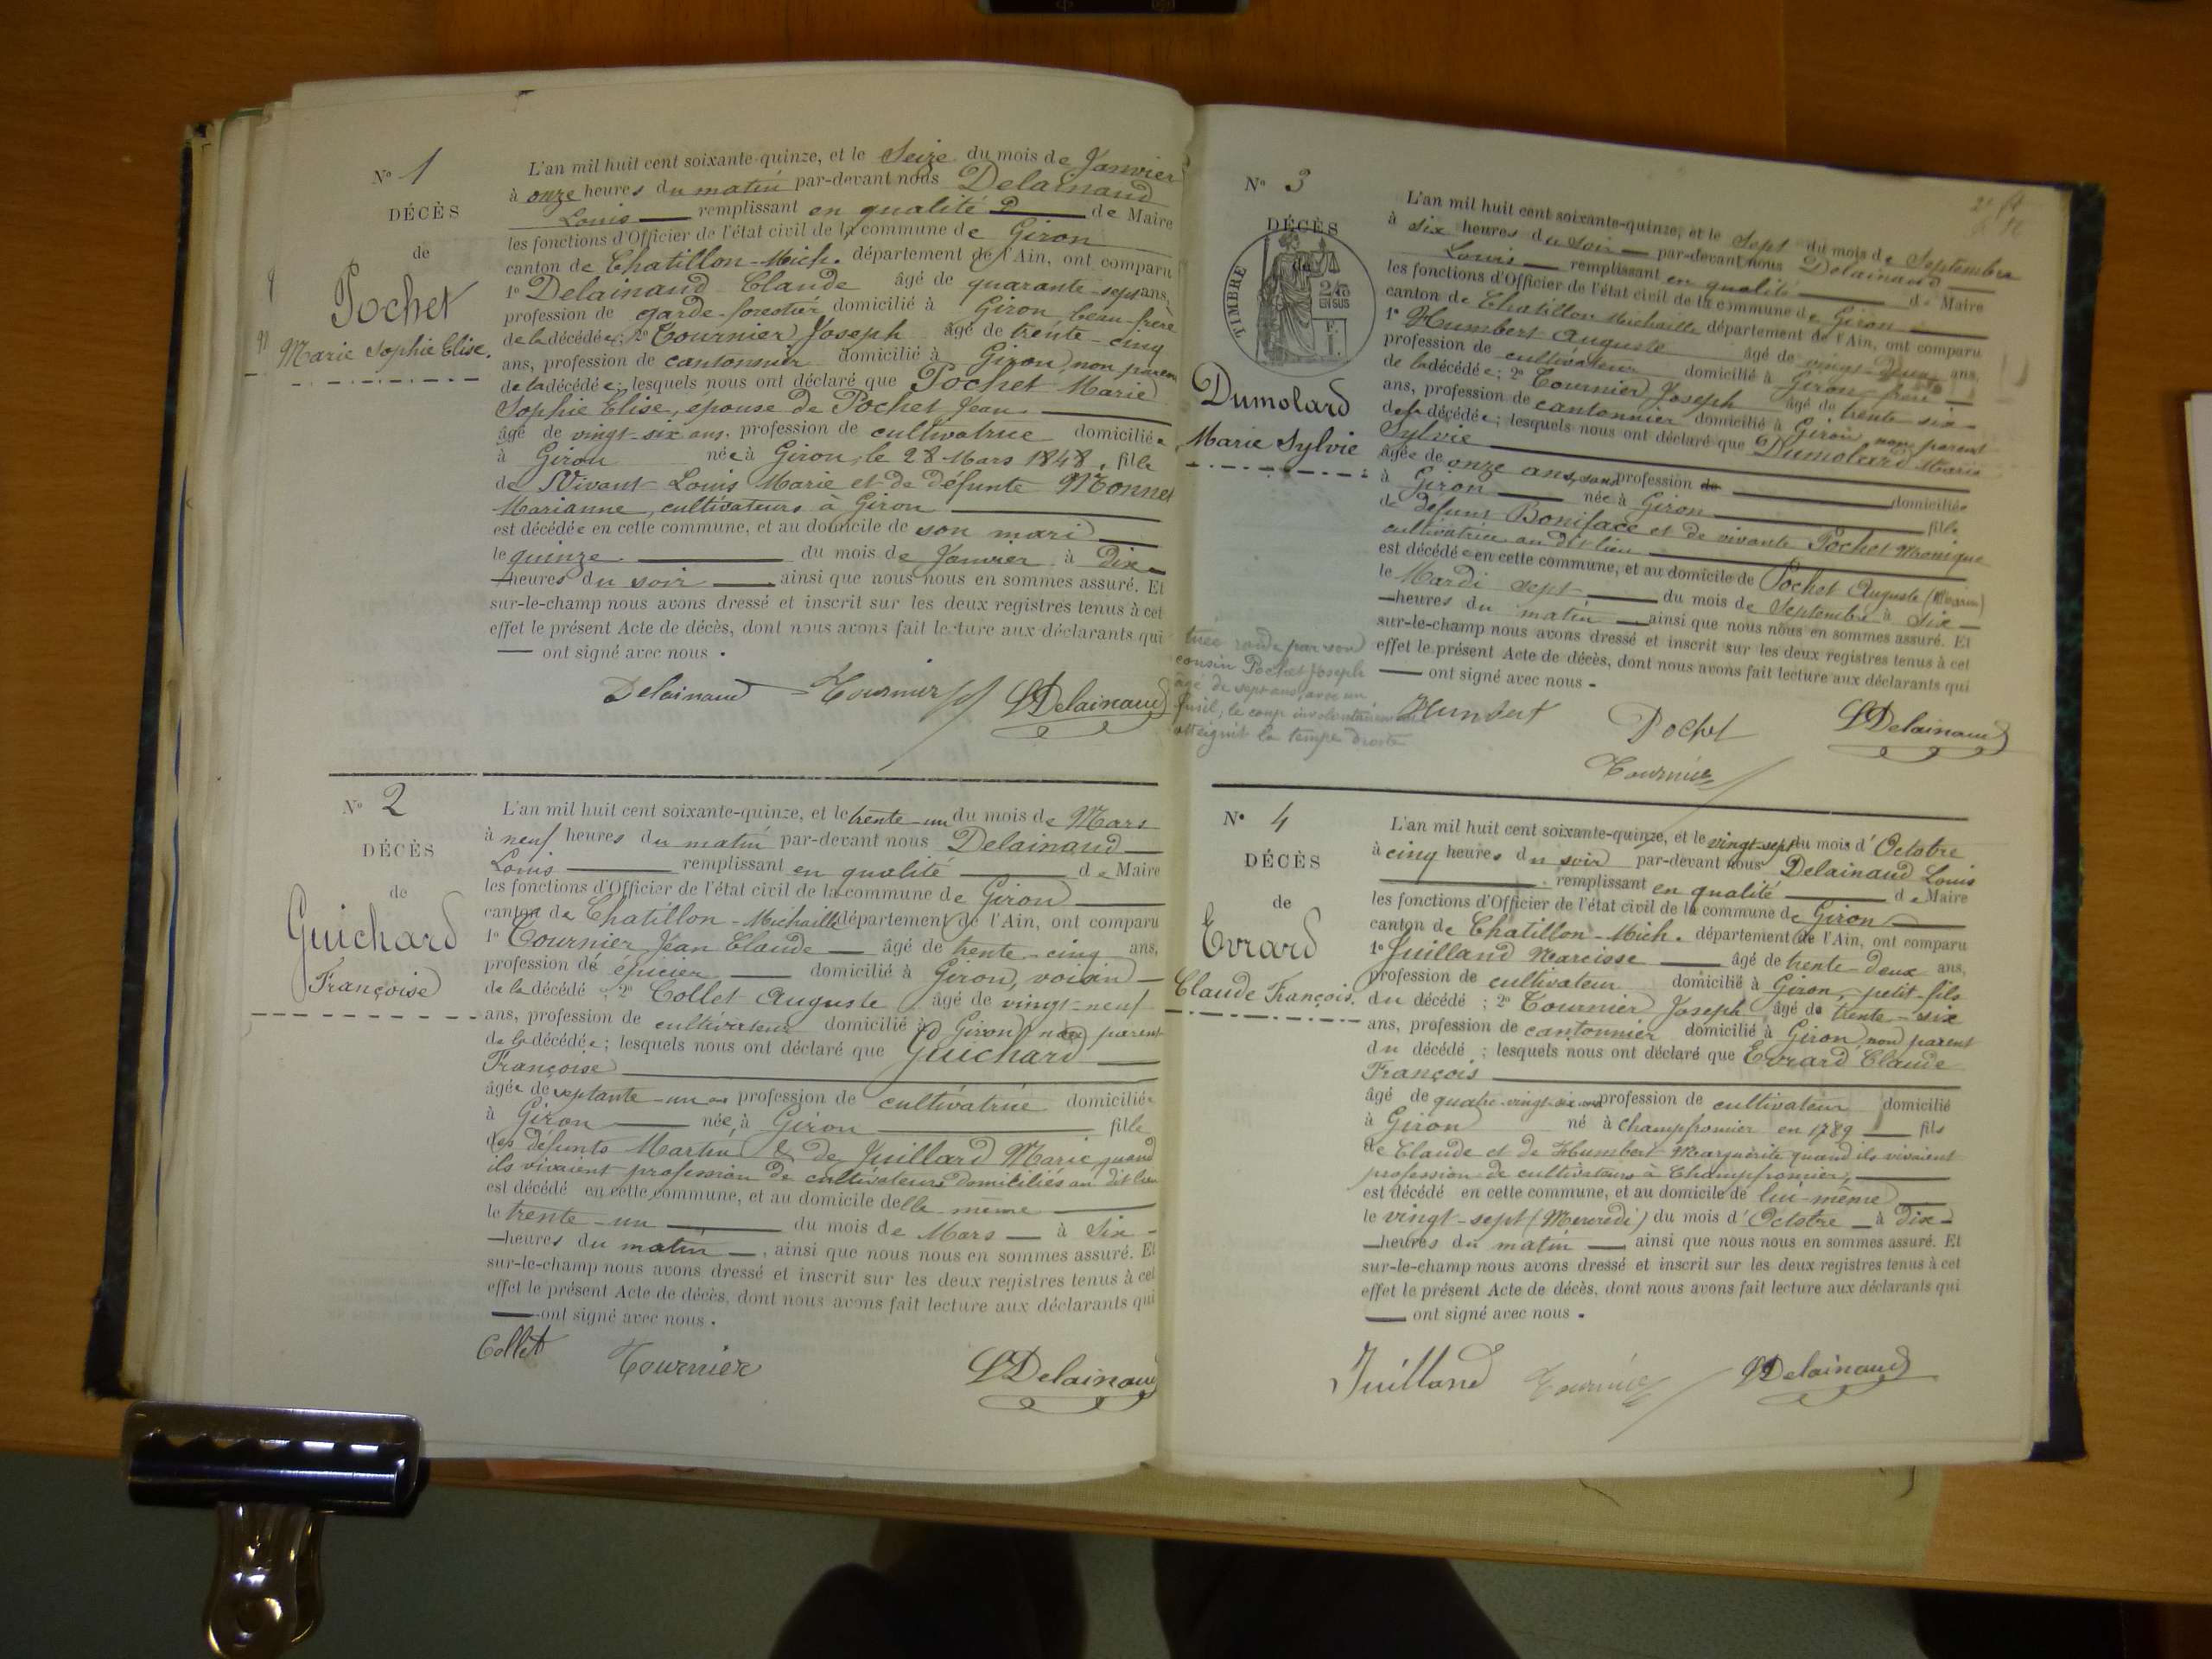 N° 1
DÉCÈS
de
Pochet
Marie Sophie Elise.
L'an mil huit cent soixante-quinze, et le Seize du mois de Janvier
à onze heures du matin par-devant nous Delainaud
Louis remplissant en qualité de Maire
les fonctions d'Officier de l'état civil de la commune de Giron
canton de Chatillon-Mich. département de l'Ain, ont comparu
1° Delainaud Claude âgé de quarante-sept ans,
profession de garde-forestier domicilié à Giron, beau-frère
de la décédée; 2° Tournier Joseph âgé de trente-cinq
ans, profession de cantonnier domicilié à Giron, non parent
de la décédée; lesquels nous ont déclaré que Pochet Marie
Sophie Elise, épouse de Pochet Jean
âgé de vingt-six ans, profession de cultivatrice domiciliée
à Giron née à Giron, le 28 Mars 1848, fille
de Vivant Louis Marie et de défunte Monnet
Marianne, cultivateurs à Giron
est décédée en cette commune, et au domicile de son mari
le quinze du mois de Janvier à dix
heures du soir ainsi que nous nous en sommes assuré. Et
sur-le-champ nous avons dressé et inscrit sur les deux registres tenus à cet
effet le présent Acte de décès, dont nous avons fait lecture aux déclarants qui
ont signé avec nous.
Delainaud Tournier LDelainaud
N° 2
DÉCÈS
de
Guichard
Françoise
L'an mil huit cent soixante-quinze, et le trente-un du mois de Mars
à neuf heures du matin par-devant nous Delainaud
Louis remplissant en qualité de Maire
les fonctions d'Officier de l'état civil de la commune de Giron
canton de Chatillon-Michaille département de l'Ain, ont comparu
1° Tournier Jean Claude âgé de trente-cinq ans,
profession de épicier domicilié à Giron, voisin
de la décédé; 2° Collet Auguste âgé de vingt-neuf
ans, profession de cultivateur domicilié à Giron, non parent
de la décédée; lesquels nous ont déclaré que Guichard
Françoise
âgée de septante-un ans profession de cultivatrice domiciliée
à Giron née, à Giron fille
des défunts Martin & de Juillard Marie, quand
ils vivaient profession de cultivateurs domiciliés au dit lieu
est décédé en cette commune, et au domicile delle-même
le trente-un du mois de Mars à six
heures du matin, ainsi que nous nous en sommes assuré. Et
sur-le-champ nous avons dressé et inscrit sur les deux registres tenus à cet
effet le présent Acte de décès, dont nous avons fait lecture aux déclarants qui
ont signé avec nous.
Collet Tournier LDelainaud
N° 3
DÉCÈS
de
TIMBRE
2/10
EN SUS
Dumolard
Marie Sylvie
L'an mil huit cent soixante-quinze, et le Sept du mois de Septembre
à six heures du soir par-devant nous Delainaud
Louis remplissant en qualité de Maire
les fonctions d'Officier de l'état civil de la commune de Giron
canton de Chatillon Michaille département de l'Ain, ont comparu
1° Humbert Auguste âgé de vingt-deux ans,
profession de cultivateur domicilié à Giron
de la décédée; 2° Tournier Joseph âgé de trente six
ans, profession de cantonnier domicilié à Giron, non parent
de la décédée; lesquels nous ont déclaré que Dumolard Marie
Sylvie
âgée de onze ans, sans profession de domiciliée
à Giron née à Giron fille
de défunt Boniface et de vivante Pochet Monique
cultivatrice au dit lieu
est décédée en cette commune, et au domicile de Pochet Auguste
le Mardi sept du mois de Septembre à six
heures du matin ainsi que nous nous en sommes assuré. Et
sur-le-champ nous avons dressé et inscrit sur les deux registres tenus à cet
effet le présent Acte de décès, dont nous avons fait lecture aux déclarants qui
ont signé avec nous.
tuée raide par son
cousin Pochet Joseph
âgé de sept ans, avec un
fusil, le coup involontairement
atteignit la tempe droite
Humbert Pochet LDelainaud
Tournier
N° 4
DÉCÈS
de
Evrard
Claude François.
L'an mil huit cent soixante-quinze, et le vingt-sept du mois d'Octobre
à cinq heures du soir par-devant nous Delainaud Louis
remplissant en qualité de Maire
les fonctions d'Officier de l'état civil de la commune de Giron
canton de Chatillon-Mich. département de l'Ain, ont comparu
1° Juilland Narcisse âgé de trente-deux ans,
profession de cultivateur domicilié à Giron, petit-fils
du décédé; 2° Tournier Joseph âgé de trente-six
ans, profession de cantonnier domicilié à Giron, non parent
du décédé; lesquels nous ont déclaré que Evrard Claude
François
âgé de quatre-vingt-six ans profession de cultivateur domicilié
à Giron né à Champfromier en 1789 fils
de Claude et de Humbert Marguerite quand ils vivaient
profession de cultivateurs à Champfromier,
est décédé en cette commune, et au domicile de lui-même
le vingt-sept (Mercredi) du mois d'Octobre à dix
heures du matin ainsi que nous nous en sommes assuré. Et
sur-le-champ nous avons dressé et inscrit sur les deux registres tenus à cet
effet le présent Acte de décès, dont nous avons fait lecture aux déclarants qui
ont signé avec nous.
Juilland Tournier LDelainaud